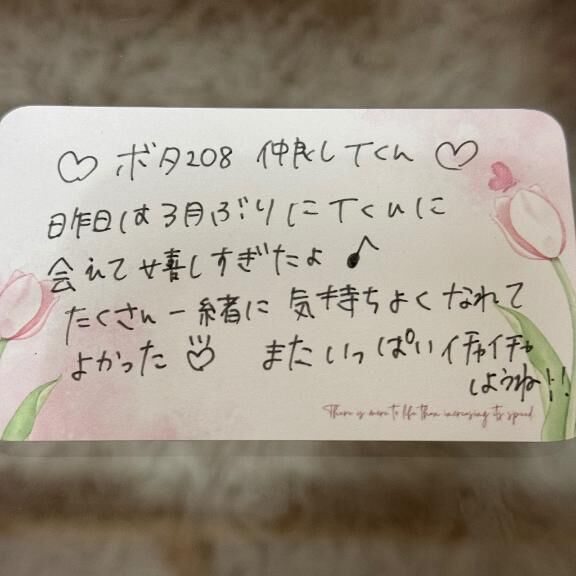 ♡ ボタ208 仲良しTくん ♡
昨日は3月ぶりにTくんに
会えて嬉しすぎたよ♪
たくさん一緒に気持ちよくなれて
よかった♡ またいっぱいイチャイチャ
しようね!!
There is more to life than increasing its speed.